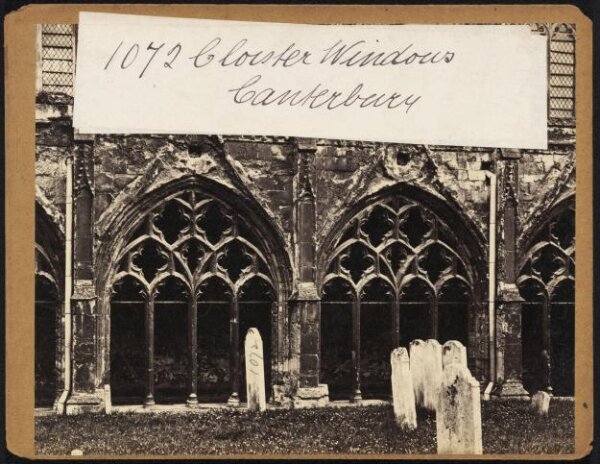 1072 Cloister Windows
Canterbury
1072